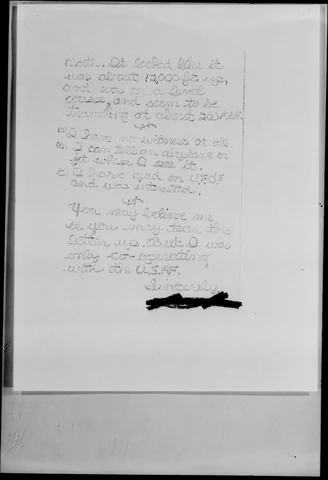 North. It looked like it
was about 12,000 ft up,
and was on a level
course, and seem to be
traveling at about 200 M.P.H.
I have no witness at all.
I can tell an airplane or
jet when I see it.
I have read on U.F.O.s
and was interested.
You may believe me
or you may tear the
letter up. But I was
only co-operating
with the U.S.AF.
Sincerely